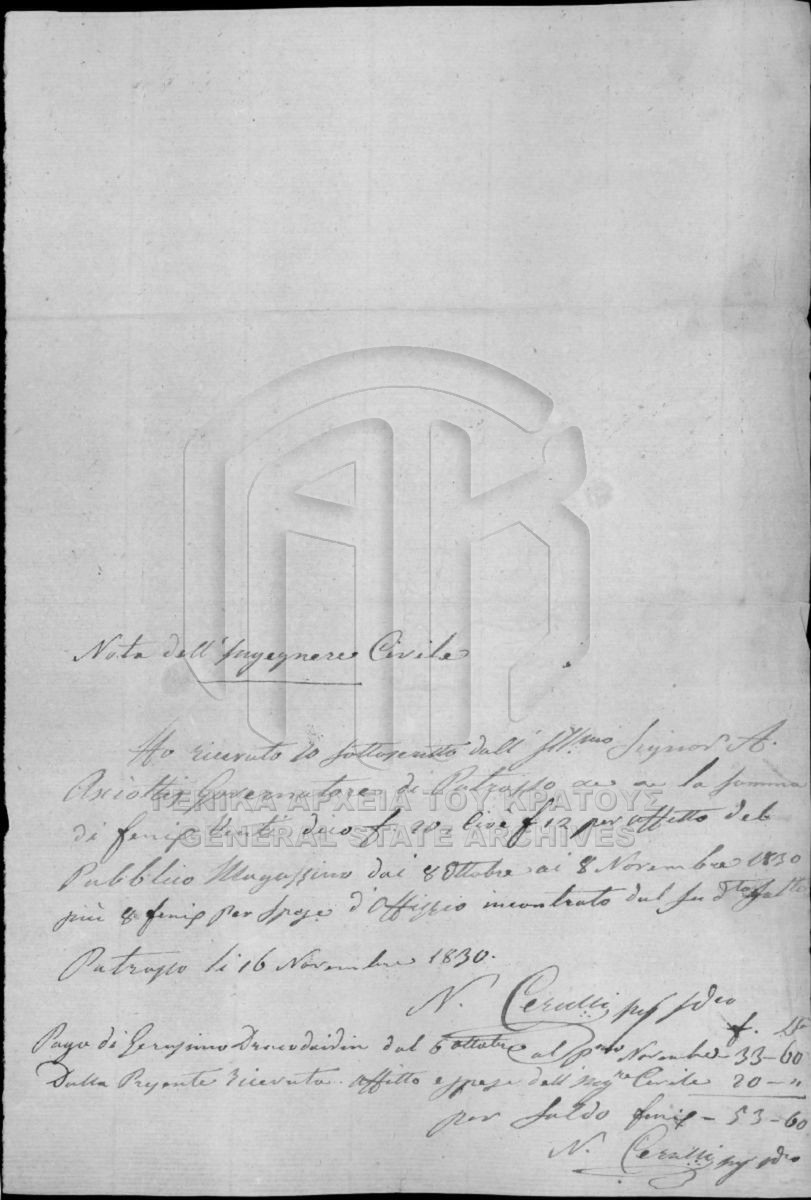 Nota dell'Ingegnere Civile
Ho ricevuto Io sottoscritto dall' Ill.mo Signor A.
Axiottis Governatore di Patrasso la somma
ΓΕΝΙΚΑ ΑΡΧΕΙΑ ΤΟΥ ΚΡΑΤΟΥΣ
di fenix Venti dico f 20. Cioè f 12 per affitto del
GENERAL STATE ARCHIVES
Pubblico Magazzino dai 8 Ottobre ai 8 Novembre 1830
più 8 fenix per spese d'Offizio incontrato dal sud.to
Patrasso li 16 Novembre 1830.
N. Cerulli
f.
Paga di Gerasimo dal 6 ottobre al Novembre 33-60
Dalla Presente ricevuta affitto e spese dell'Ing.re Civile 20-"
per saldo fenix - 53-60
N. Cerulli